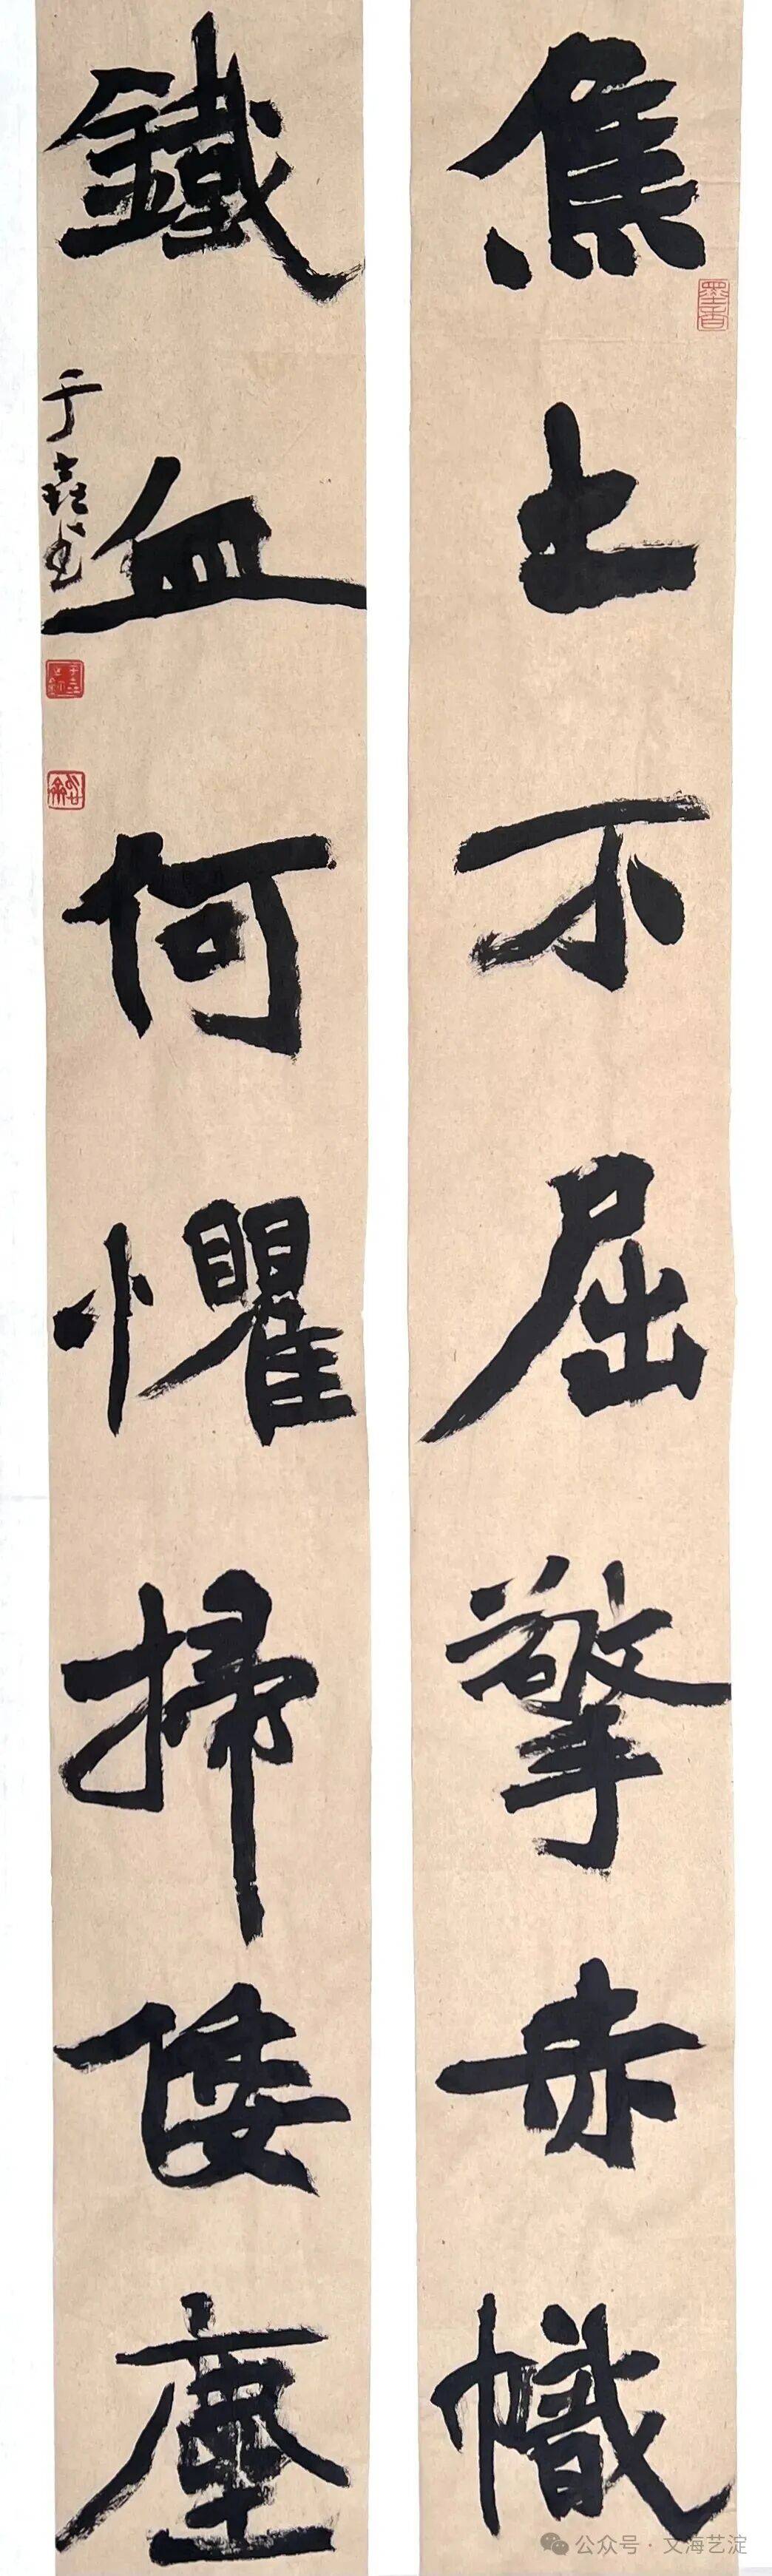 焦土不屈擎赤幟
鐵血何懼掃倭塵
于
书
墨香
公众号·文海艺淀